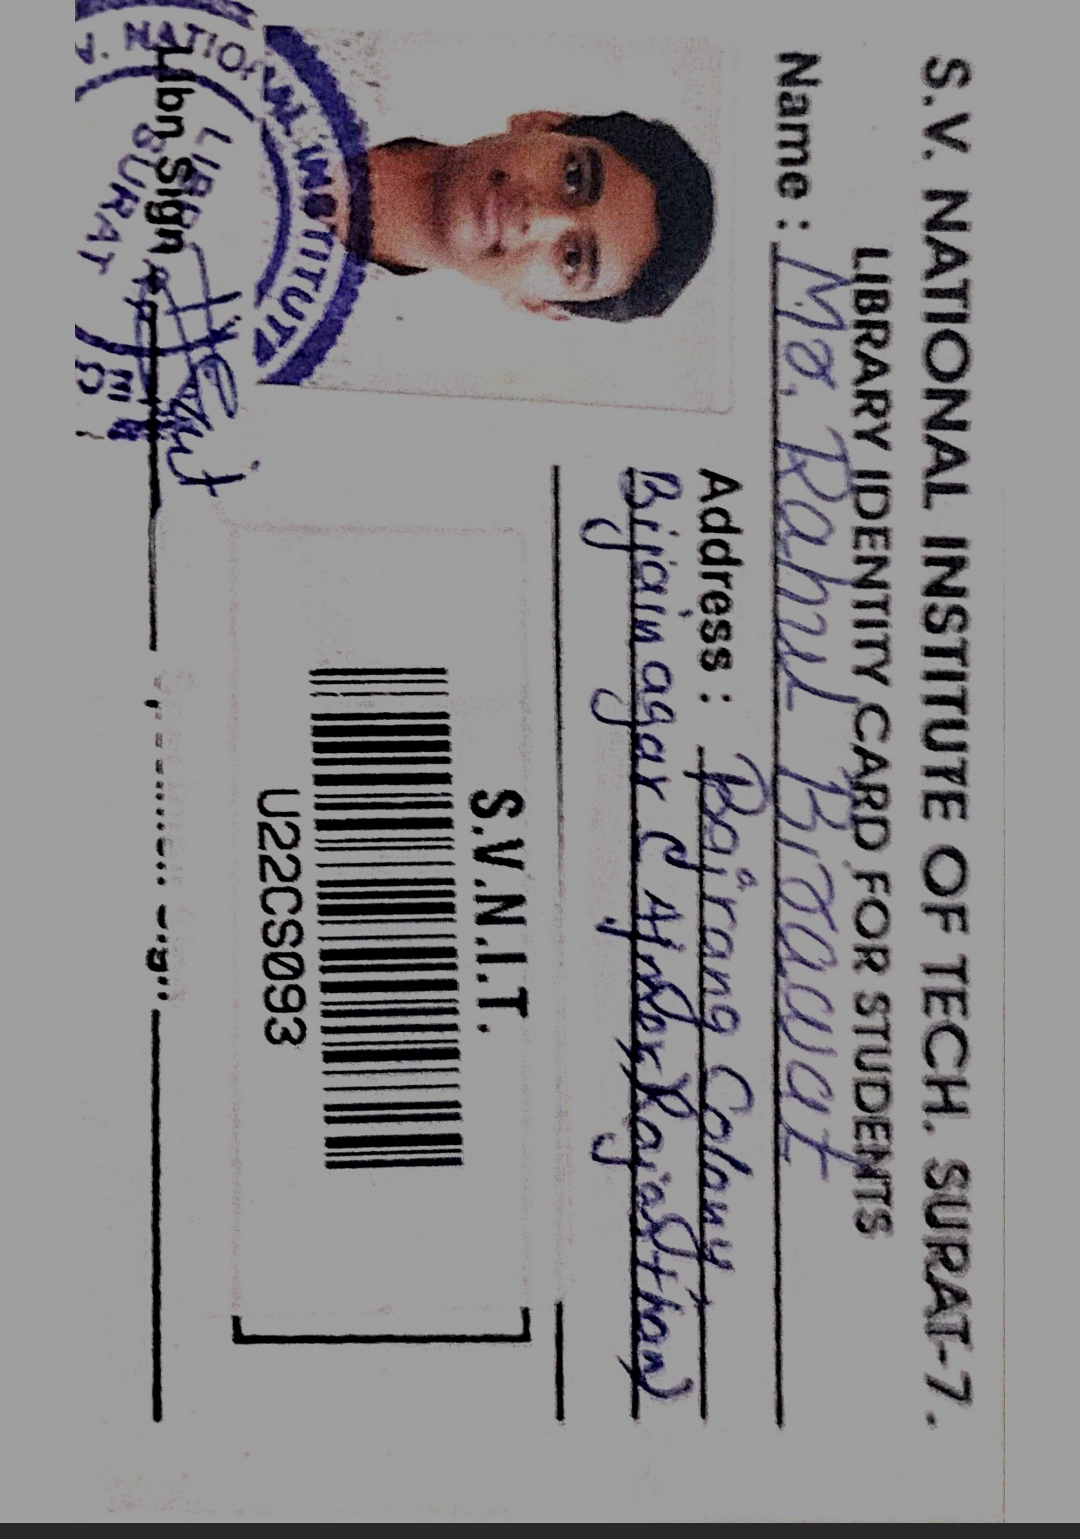 S.V. NATIONAL INSTITUTE OF TECH. SURAT-7.
LIBRARY IDENTITY CARD FOR STUDENTS
Name : Mo. Rahul Birawat
Address : Bajrang Colony
Bijainagar (Ajmer, Rajasthan)
S.V.N.I.T.
U22CS093
V. NATIONAL INSTITUTE
SURAT
Libn Sign